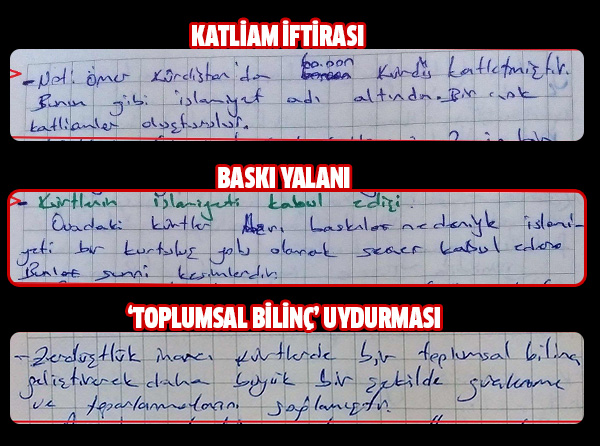 KATLİAM İFTİRASI
- Not: Ömer Kürdistan'da 60.000 Kürdü katletmiştir.
Bunun gibi islamiyet adı altında Bir çok
katliamler oluşturulur.
BASKI YALANI
- Kürtlerin islamiyeti kabul edişi.
Ovadaki kürtler baskılar nedeniyle islami-
yeti bir kurtuluş yolu olarak seçer kabul eder
Bunlar sunni kesimlerdir.
'TOPLUMSAL BİLİNÇ' UYDURMASI
- Zerdüştlük inancı kürtlerde bir toplumsal bilinç
geliştirerek daha büyük bir şekilde güçlenme
ve toparlanmalarını sağlamıştır.